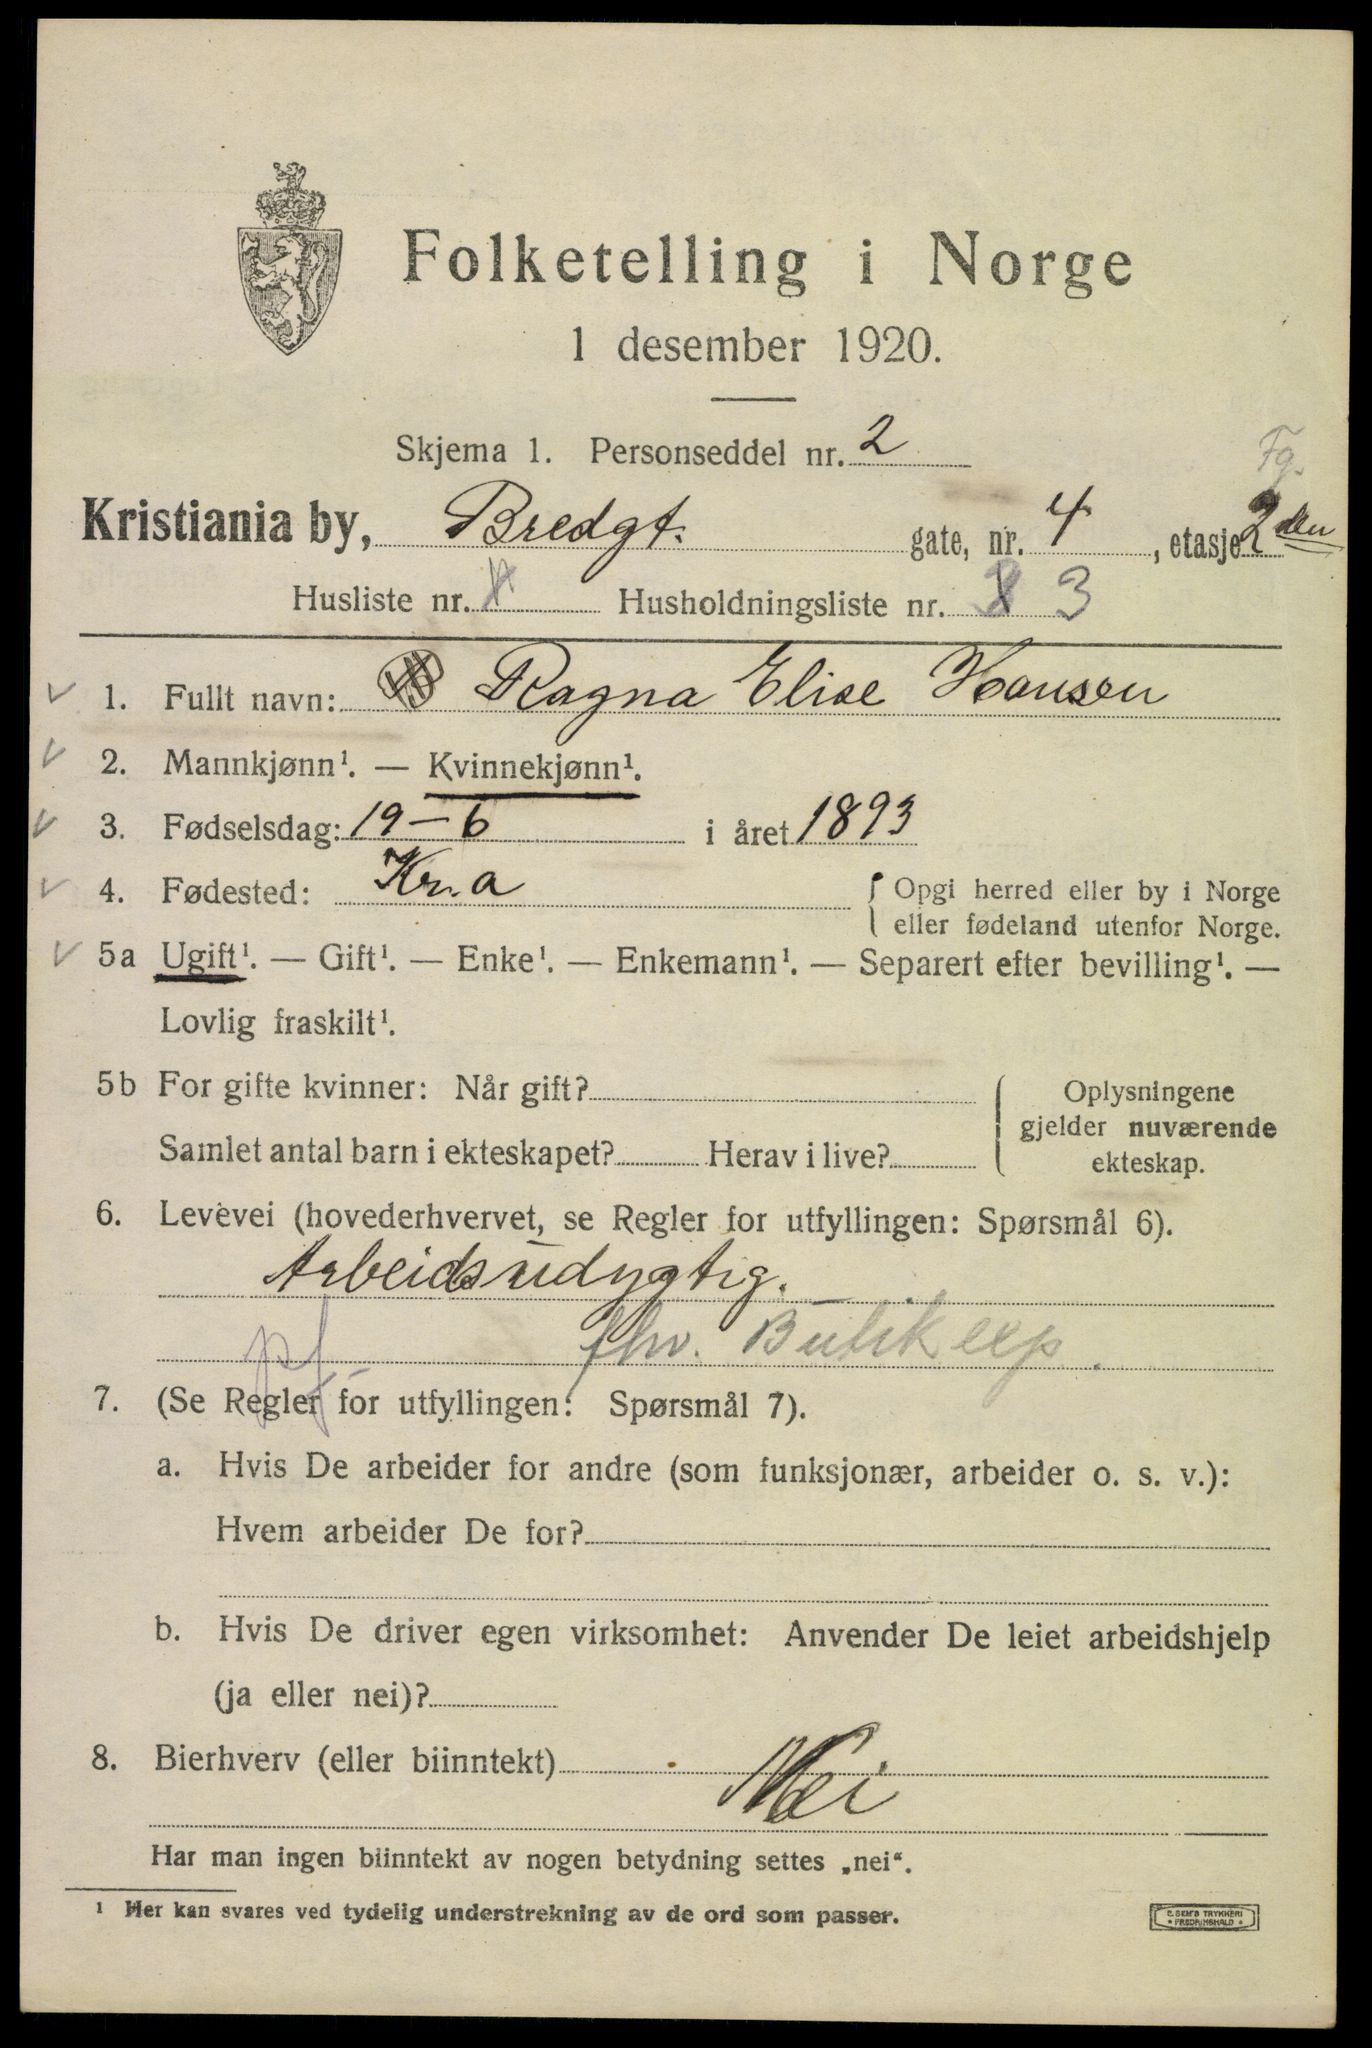 Folketelling i Norge
1 desember 1920.
Skjema 1. Personseddel nr. 2
Fg.
Kristiania by, Bredgt. gate, nr. 4, etasje 2den
Husliste nr. Husholdningsliste nr. 3
1. Fullt navn: Ragna Elise Hansen
2. Mannkjønn¹. — Kvinnekjønn¹.
3. Fødselsdag: 19–6 i året 1893
4. Fødested: Kr.a { Opgi herred eller by i Norge
eller fødeland utenfor Norge.
5a Ugift¹. — Gift¹. — Enke¹. — Enkemann¹. — Separert efter bevilling¹. —
Lovlig fraskilt¹.
5b For gifte kvinner: Når gift?
Samlet antal barn i ekteskapet? Herav i live?
{ Oplysningene
gjelder nuværende
ekteskap.
6. Levevei (hovederhvervet, se Regler for utfyllingen: Spørsmål 6).
Arbeidsudygtig.
fhv. Butikeksp.
7. (Se Regler for utfyllingen: Spørsmål 7).
a. Hvis De arbeider for andre (som funksjonær, arbeider o. s. v.):
Hvem arbeider De for?
b. Hvis De driver egen virksomhet: Anvender De leiet arbeidshjelp
(ja eller nei)?
8. Bierhverv (eller biinntekt) Nei
Har man ingen biinntekt av nogen betydning settes „nei“.
¹ Her kan svares ved tydelig understrekning av de ord som passer.
E. SEM'S TRYKKERI
* FREDRIKSHALD *